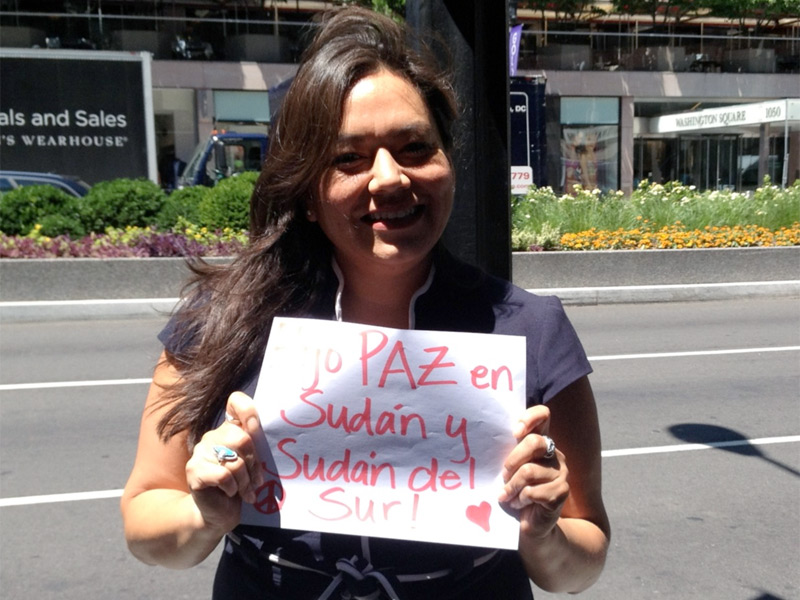 als and Sales
N'S WEARHOUSE®
DC
779
WASHINGTON SQUARE 1050
yo PAZ en
Sudán y
Sudán del
Sur!